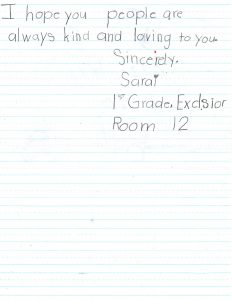 I hope you people are
always kind and loving to you.
Sincerely.
Sarai
1st Grade, Exclsior
Room 12